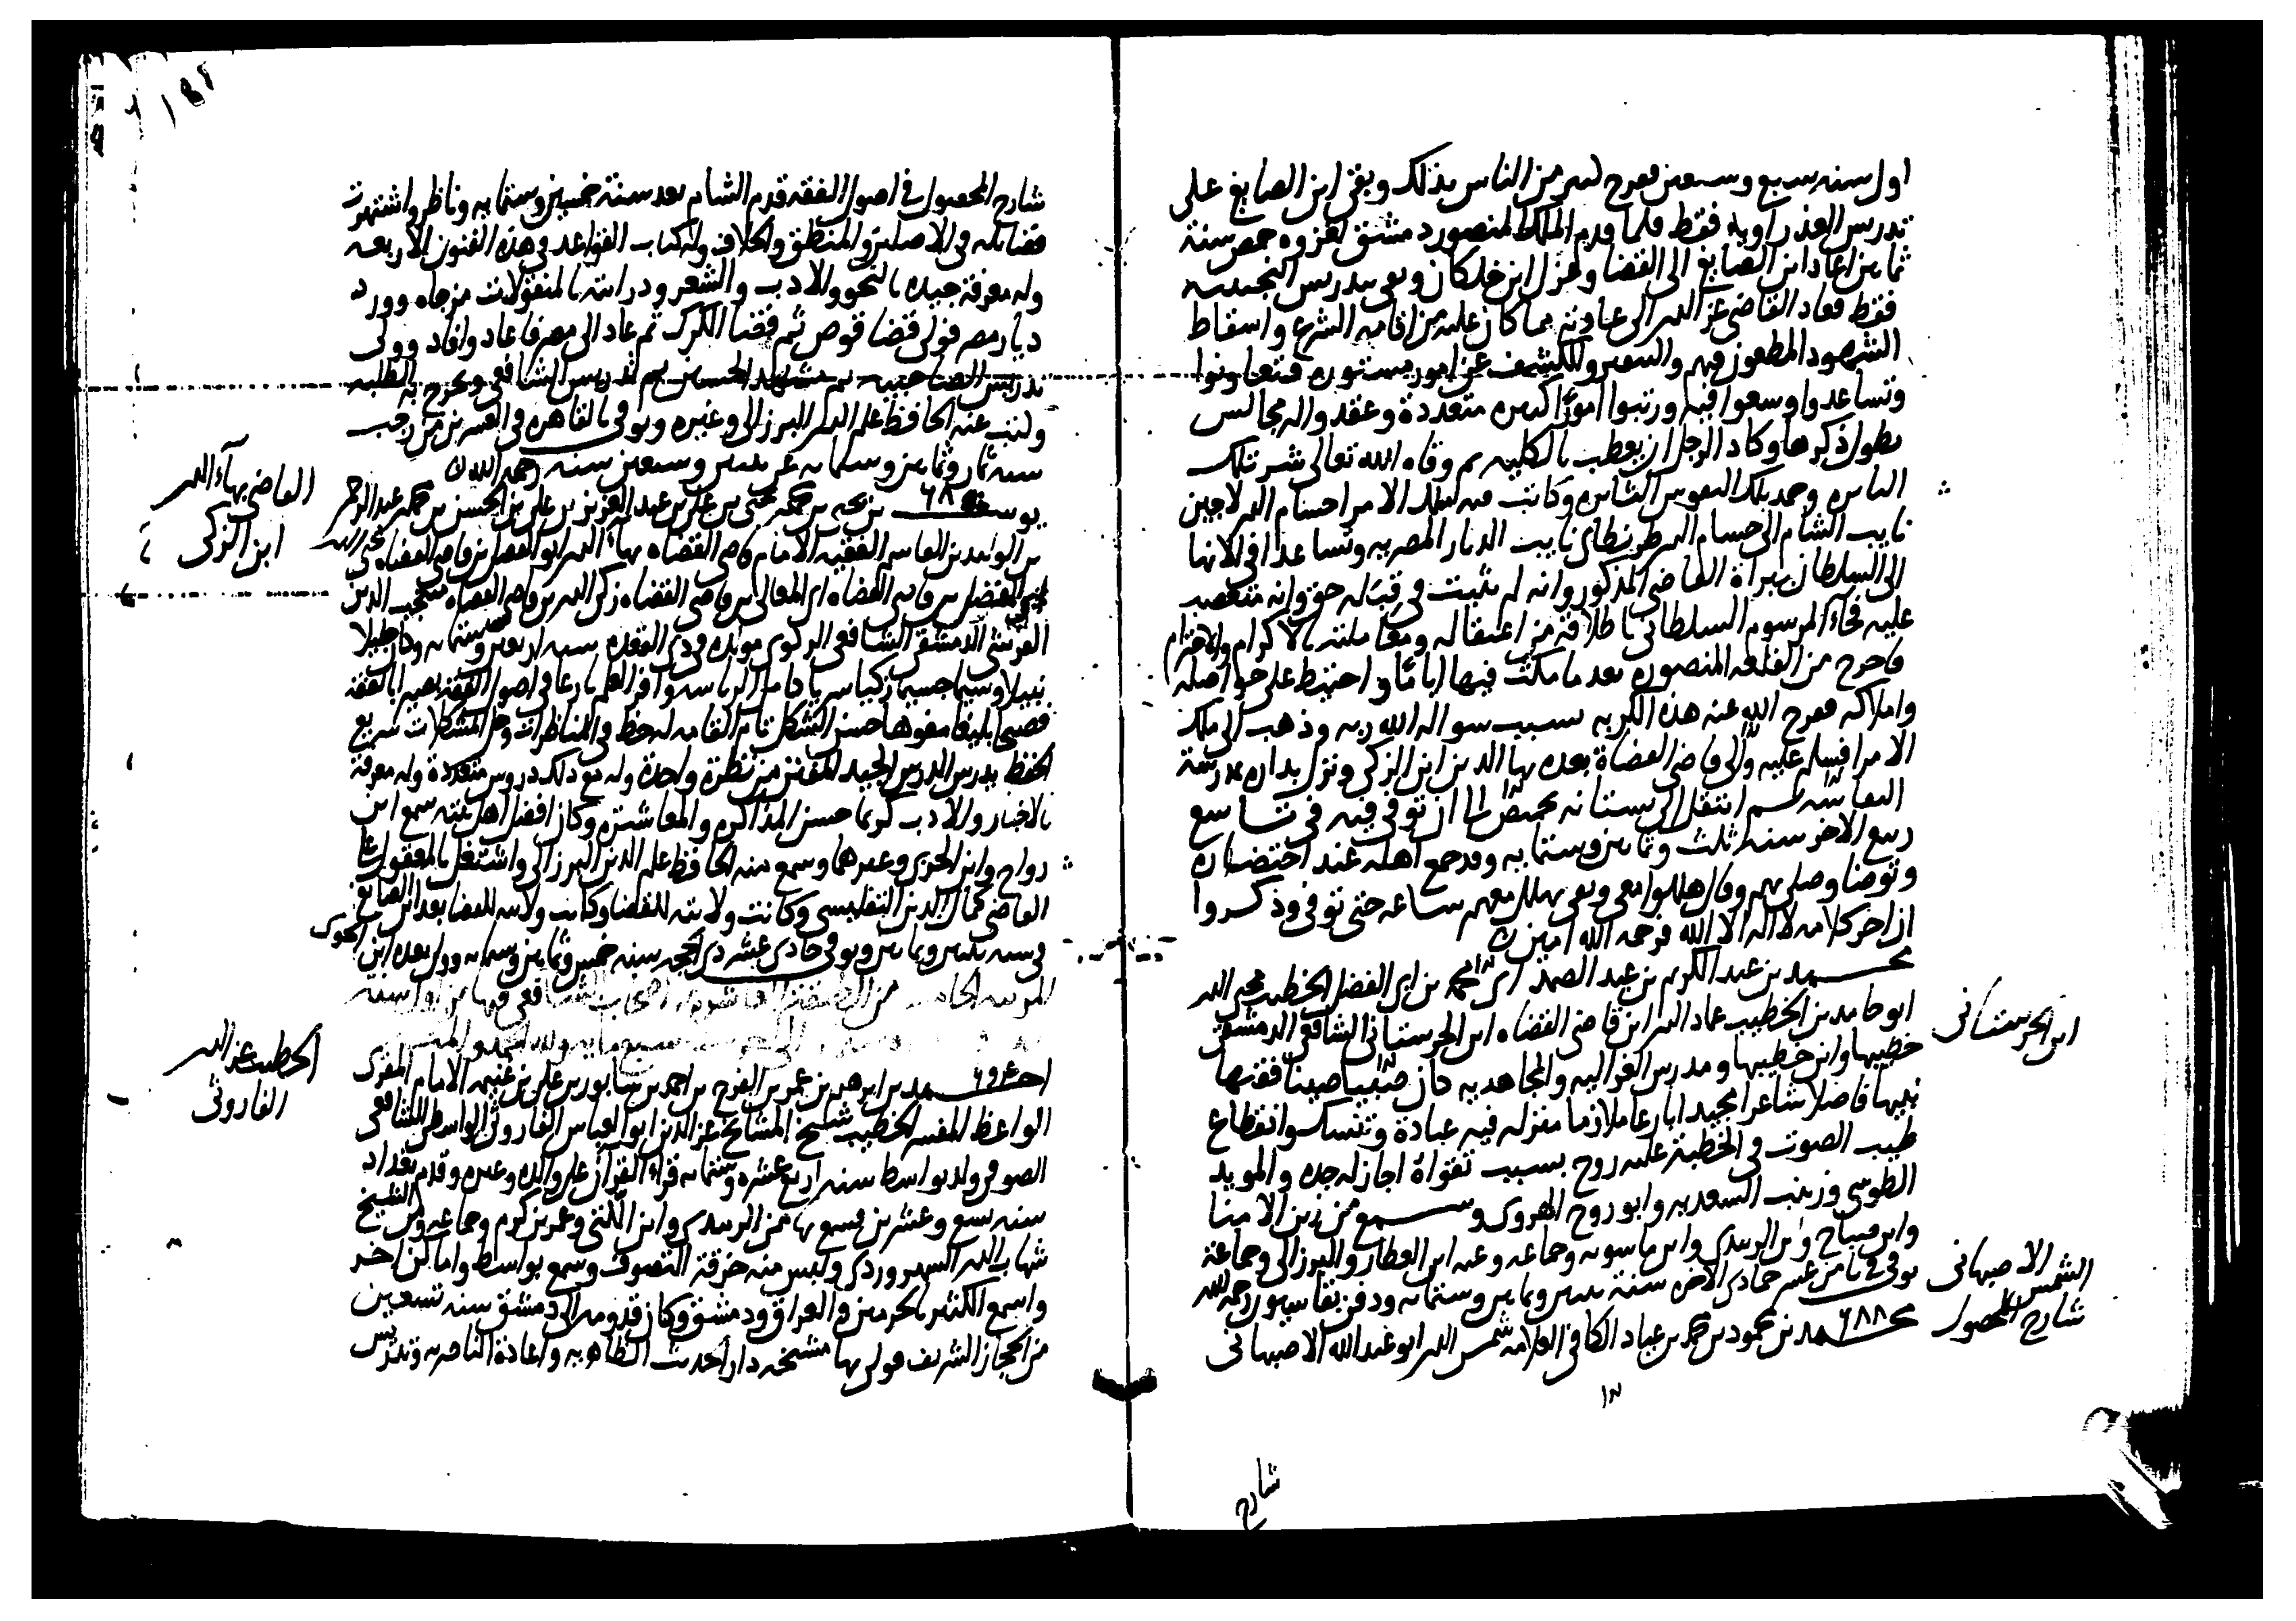 اول سنة سبع وسبعين ففرح كثير من الناس بذلك وبقى ابن الصايغ على
تدريس العذراوية فقط فلما قدم الملك المنصور دمشق لغزوه حمص سنة
ثمانين اعاد ابن الصايغ الى القضا وعزل ابن خلكان وبقى بيده تدريس النجيبية
فقط فعاد القاضى عز الدين الى عادته مما كان عليه من اقامه الشرع واسقاط
الشهود المطعون فيهم والكشف عن امور مستوره فتعاونوا
وتساعدوا وسعوا فيه ورتبوا امورًا كثيره متعددة وعقدوا له مجالس
يطول ذكرها وكاد الرجل ان يعطب بالكليه ثم وقاه الله تعالى شر تلك
النايره وخمد تلك النفوس الثايره وكاتب فيه ملك الامرا حسام الدين لاجين
نايب الشام الى حسام الدين طرنطاى نايب الديار المصريه وتساعدا فى الانها
الى السلطان ببراة القاضى المذكور وانه لم يثبت فى قبله حق وانه متعصب
عليه فجآء المرسوم السلطانى باطلاقه من اعتقاله ومعاملته بالاكرام والاحترام
فاخرج من القلعه المنصوره بعد ما مكث فيها اياما واحتيط على حواصله
واملاكه ففرج الله عنه هذه الكربه بسبب سواله الله ربه وذهب الى ملك
الامرا فسلم عليه والى قاضى القضاة بعده بها الدين ابن الزكى ونزل بداره بدرب
النقاشه ثم انتقل الى بستانه بحميص الى ان توفى فيه فى تاسع
ربيع الاخر سنة ثلث وثمانين وستمايه وقد جمع اهله عند احتضاره
وتوضا وصلى بهم وقال هللوا معى وبقى يهلل معهم ساعه حتى توفى وذكروا
ان اخر كلامه لا اله الا الله فرحمه الله امين
محمد بن عبد الكريم بن عبد الصمد بن محمد بن ابى الفضل الخطيب محيى الدين
ابو حامد بن الخطيب عماد الدين ابن قاضى القضاه ابن الحرستانى الشافعى الدمشقى
ابن الحرستانى
خطيبها وابن خطيبها ومدرس الغزاليه والمجاهديه كان صيبا صينا فقيها
نبيها فاضلا شاعرا مجيدا بارعا ملازما منزله فيه عبادة وتنسك وانقطاع
طيب الصوت فى الخطبة عليه روح بسبب تقواه اجاز له جده والمويد
الطوسى وزينب السعديه وابو روح الهروى وسمع من زين الامنا
وابن صباح وابن الزبيدى وابن ماسويه وجماعه وعنه ابن العطار والبرزالى وجماعة
توفى فى ثامن عشر جمادى الاخره سنة اثنين وثمانين وستمايه ودفن بقاسيون رحمه الله
٦٨٨ محمد بن محمود بن محمد بن عباد الكافى العلامه شمس الدين ابو عبد الله الاصبهانى
الشمس الاصبهانى
شارح المحصول
شارح
شارح المحصول فى اصول الفقه قدم الشام بعد سنة خمسين وستمايه وناظر واشتهرت
فضايله فى الاصلين والمنطق والخلاف وله كتاب القواعد فى هذه الفنون الاربعه
وله معرفة جيده بالنحو والادب والشعر ودرايته بالمنقولات مزجاه وورد
ديار مصر فولى قضا قوص ثم قضا الكرك ثم عاد الى مصر فاعاد وافاد وولى
تدريس الصاحبيه ثم مشهد الحسين ثم تدريس الشافعى وتخرج به الطلبه
وكتب عنه الحافظ علم الدين البرزالى وغيره وتوفى بالقاهره فى العشرين من رجب
سنه ثمان وثمانين وستمايه عن اثنين وسبعين سنه رحمه الله
يوسف بن يحيى بن محمد بن على بن عبد العزيز بن على بن الحسن بن محمد بن عبد الرحمن
القاضى بهآء الدين
ابن الزكى
بن الوليد بن القاسم الفقيه الامام قاضى القضاه بهآء الدين ابو الفضل بن قاضى القضاه
ابى الفضل بن قاضى القضاه ابى المعالى بن قاضى القضاه زكى الدين بن قاضى القضاه منتجب الدين
القرشى الدمشقى الشافعى الزكوى مولده فى ذى القعده سنه اربعين وستمايه وكان جليلا
نبيلا وسيما جسيما زكيا سريا كامل الرياسه وافر العلم بارعا فى اصول الفقه بصيرا بالفقه
فصيحا بليغا مفوها حسن الشكل تام القامه له حظ فى المناظرات وحل المشكلات سريع
الحفظ يدرس الدرس الجيد المتقن من نظرة واحدة وله مع ذلك دروس متعددة وله معرفة
بالاخبار والادب كريما حسن المذاكره والمعاشره وكان افضل اهل بيته سمع ابن
رواح وابن الجميزى وغيرهما وسمع منه الحافظ علم الدين البرزالى واشتغل بالمعقول على
القاضى كمال الدين التفليسى وكانت ولايته للقضا بعد ابن الصايغ
فى سنه اثنين وثمانين وتوفى حادى عشر ذى الحجه سنه خمس وثمانين وستمايه وولى بعده ابن الخوى
المرتبه الخامسه من الطبقه العاشره من اصحاب الشافعى فيها من اول سنة
احمد بن ابرهيم بن عمر بن الفرج بن احمد بن سابور بن على بن غنيمه الامام المقرى
الخطيب عز الدين
الفاروثى
الواعظ المفسر الخطيب شيخ المشايخ عز الدين ابو العباس الفاروثى الواسطى الشافعى
الصوفى ولد بواسط سنه اربع عشره وستمايه قراء القرآن على والده وغيره وقدم بغداد
سنه تسع وعشرين فسمع بها من الزبيدى وابن اللتى وعمر بن كرم وجماعه ومن الشيخ
شهاب الدين السهروردى ولبس منه خرقة التصوف وسمع بواسط واماكن اخر
واسمع الكثير بالحرمين والعراق ودمشق وكان قدومه الى دمشق سنه تسعين
من الحجاز الشريف فولى بها مشيخه دار الحديث الظاهريه واعادة الناصريه وتدريس